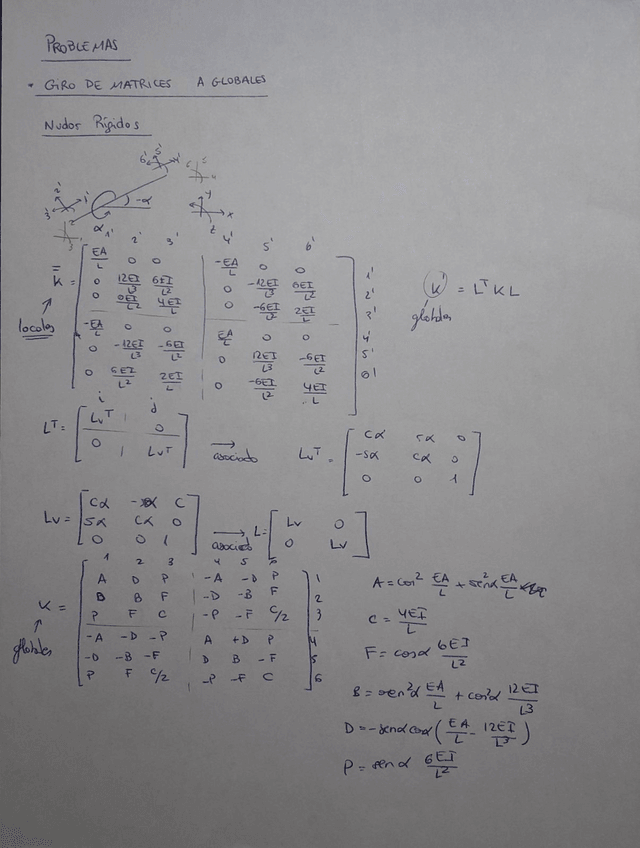 PROBLEMAS
* GIRO DE MATRICES A GLOBALES
Nudos Rígidos
6' 5' 4'
2' 1' 3'
-α α
y x z
1' 2' 3' 4' 5' 6'
K̿ =
EA/L 0 0 -EA/L 0 0 1'
0 12EI/L³ 6EI/L² 0 -12EI/L³ 6EI/L² 2'
0 6EI/L² 4EI/L 0 -6EI/L² 2EI/L 3'
-EA/L 0 0 EA/L 0 0 4'
0 -12EI/L³ -6EI/L² 0 12EI/L³ -6EI/L² 5'
0 6EI/L² 2EI/L 0 -6EI/L² 4EI/L 6'
locales
K = LᵀKL
globales
i j
Lᵀ = [ Lvᵀ 0
0 Lvᵀ ]
asociado
Lvᵀ = [ Cα sα 0
-sα Cα 0
0 0 1 ]
Lv = [ Cα -sα C
Sα Cα 0
0 0 1 ]
asociado L = [ Lv 0
0 Lv ]
1 2 3 4 5 6
K =
A D P -A -D P 1
B B F -D -B F 2
P F C -P -F C/2 3
-A -D -P A +D P 4
-D -B -F D B -F 5
P F C/2 -P -F C 6
globales
A = cos² EA/L + sen²α EA/L
C = 4EI/L
F = cosα 6EI/L²
B = sen²α EA/L + cos²α 12EI/L³
D = -senα cosα (EA/L - 12EI/L³)
P = senα 6EI/L²